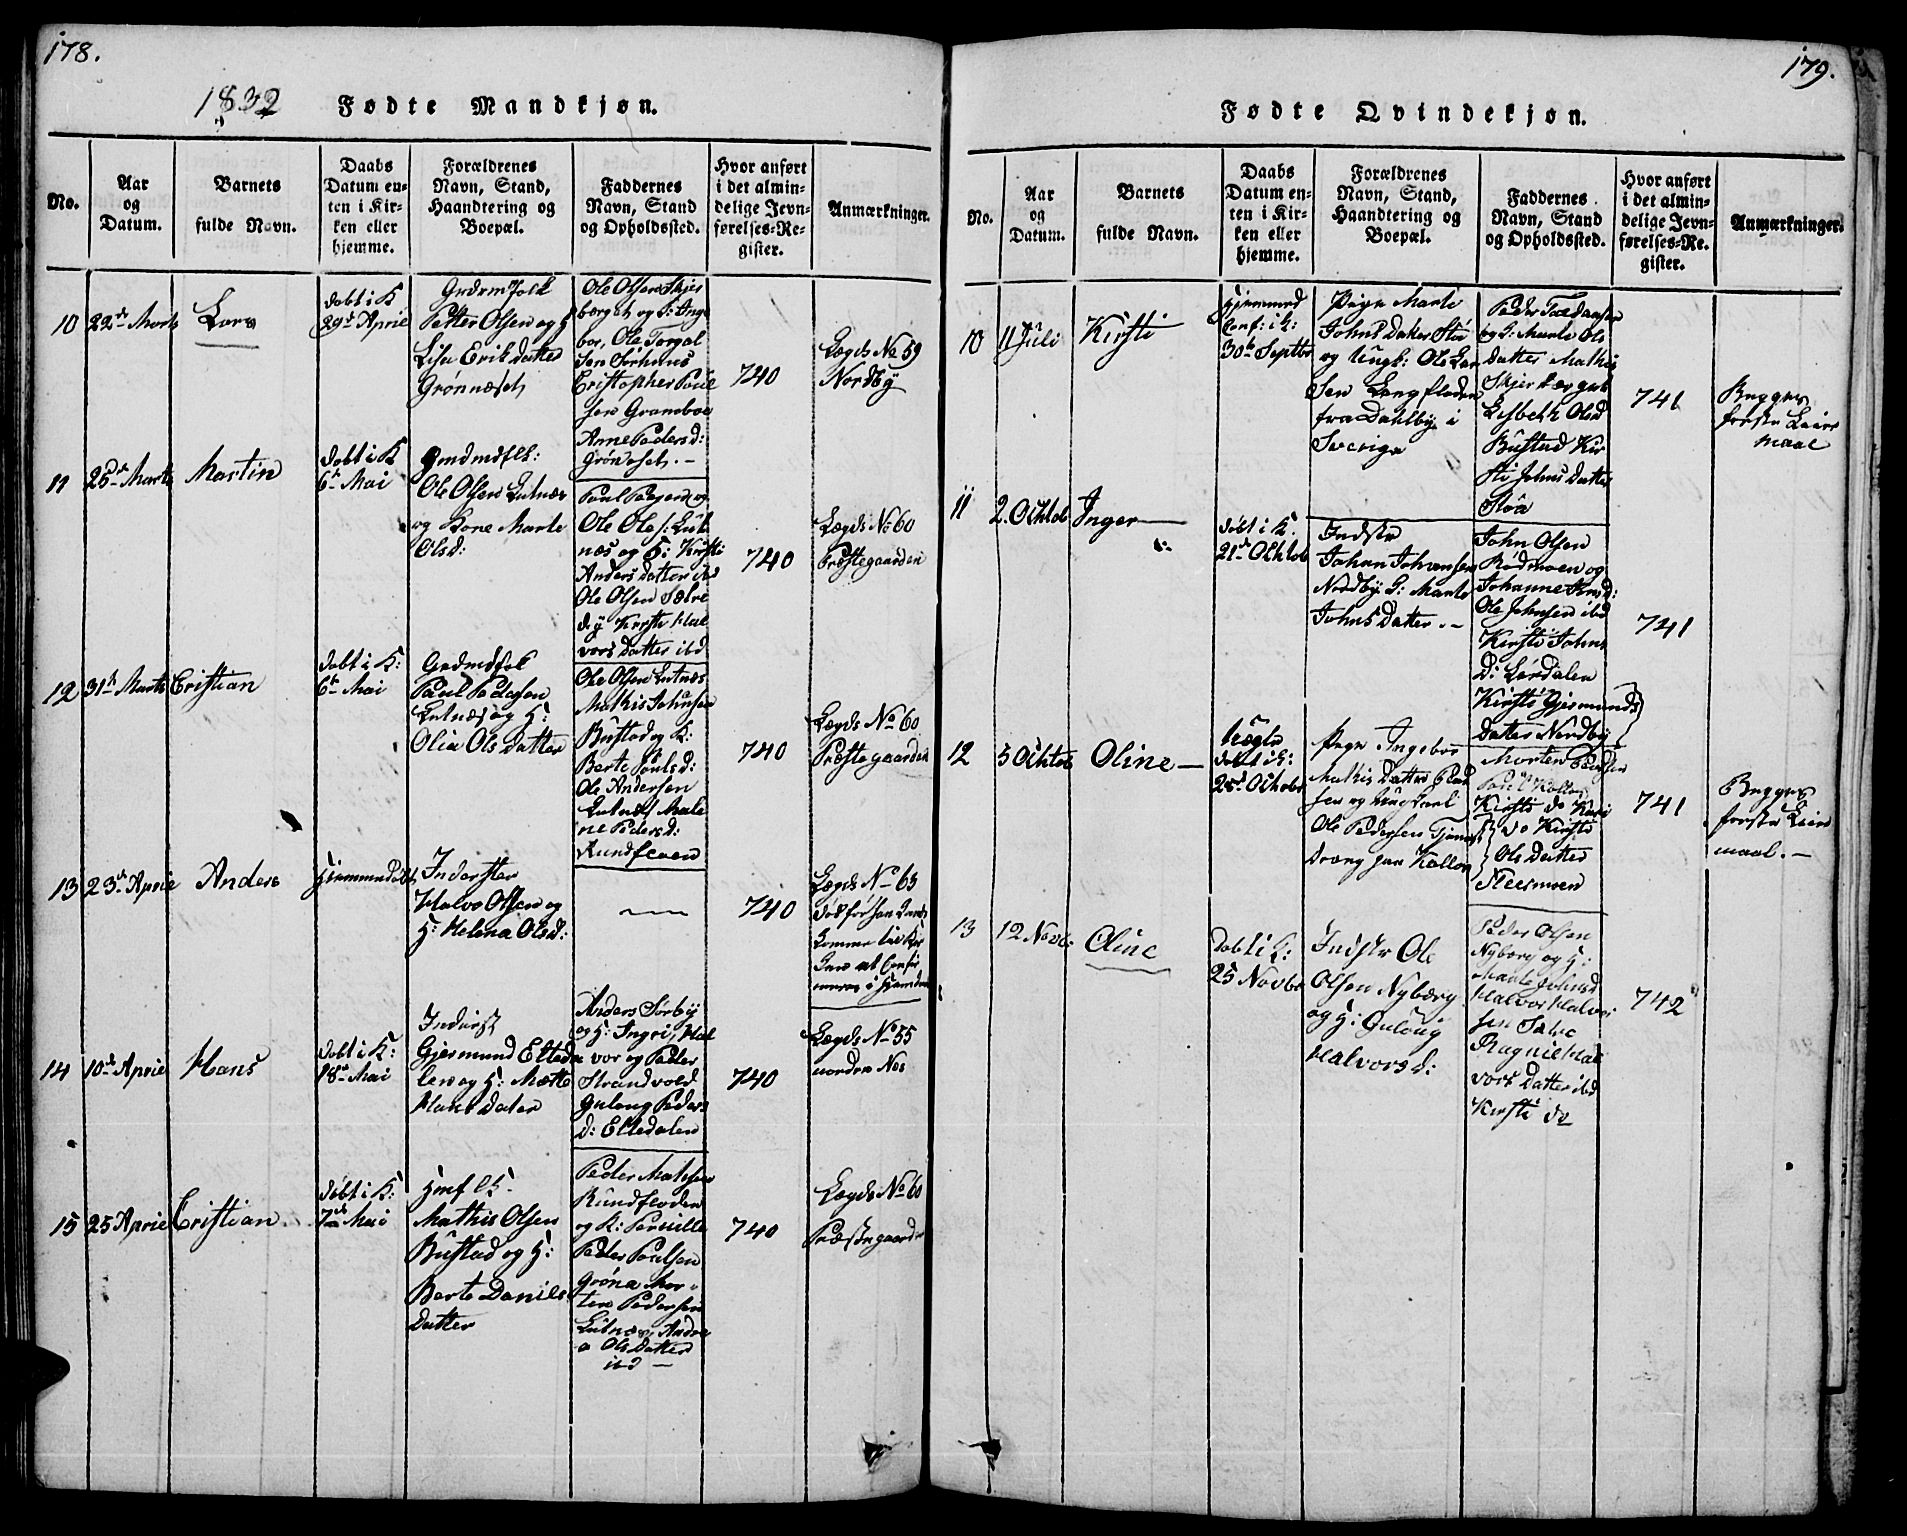 178.
1832 Fødte Mandkjøn.
No.
Aar
og
Datum.
Barnets
fulde Navn.
Daabs
Datum en-
ten i Kir-
ken eller
hjemme.
Forældrenes
Navn, Stand,
Haandtering og
Boepæl.
Faddernes
Navn, Stand
og Opholdssted.
Hvor anført
i det almin-
delige Jevn-
førelses-Re-
gister.
Anmærkninger.
10
22de Marts
Lars
døbt i K
29de Aprie
Gmdmfolk
Petter Olsen og H
Lisa Erik datter
Grønneset
Ole Olsen Skjer
berget og H: Inge
bor, Ole Torgal
sen Sørhuus
Cristopher Poul
sen Gramboe
Anne Peders d:
Grøneset. -
740
Lægds No 59
Nordby
11
26de Marts
Martin
døbt i K
6te Mai
Gmdmdflk:
Ole Olsen Lutnæs
og Kone Marte
Olsd:
Poul Poulsen og
Ole Ols: Lut
næs og H: Kirsti
Anders datter ibd
Ole Olsen Sætre
dy Kirsti Hal
vors datter ibd
740
Lægds No 60
Præstegaarden
12
31te Marts
Cristian
døbt i K:
6te Mai
Gmdmdfolk
Paul Pedersen
Lutnæs og H:
Olia Ols Datter
Ole Olsen Lutnæs
Mathis Johnsen
Bustad og K:
Berte Poulsd:
Ole Andersen
Lutnæs Male
ne Peders d:
Rundfloen
740
Lægds No 60
Præstegaarden
13
23de Aprie
Anders
Hjemmedøbt
Inderster
Halvo Olsen og
H: Helena Olsd:
740
Lægds No 63
død før han kunde
komme til Kir
ken at Confir
meres i Hænder
14
10de Aprie
Hans
døbt i K:
18de Mai
Inderst
Gjermund Elteda
len og H: Mætte
Hans dater
Anders Sørby
og H: Ingri, Hal
vor og Peder
Strandvold
Guloug Peders
d: Eltedalen
740
Lægds No 55
nordre Nes
15
25 Aprie
Cristian
døbt i K:
7de Mai
Hmf lk.
Mathis Olsen
Bustad og H:
Berte Daniels
Datter
Peder Mathisen
Rundfloden
og K: Pernille
Peder Poulsen
Grøna Mor-
ten Pedersen
Lutnæs, Andre
a Olsdatter
ibd -
740
Lægds No 60
Præstegaarden
179.
Fødte Qvindekjøn.
No.
Aar
og
Datum.
Barnets
fulde Navn.
Daabs
Datum en-
ten i Kir-
ken eller
hjemme.
Forældrenes
Navn, Stand,
Haandtering og
Boepæl.
Faddernes
Navn, Stand
og Opholdssted.
Hvor anført
i det almin-
delige Jevn-
førelses-Re-
gister.
Anmærkninger.
10
11te Juli
Kirsti
Hjemmed
Conf: i K:
30te Septbr
Pige Marte
Johns datter Støa
og Ungk: Ole Lar
sen Langfloden
fra Dahlby i
Sverige
og H: Marte Ols
datter Mathis
Skjerberget
Lisbeth Olsd
Bustad Kir
sti Johns datter
Støa
741
Begges
første Leier
maal
11
2. Ocktob
Inger
døbt i K.
21de Ocktob
Indstr
Johan Johansen
Nordby H: Marte
Johns datter. -
John Olsen
Rødmoen og
Johanne
Ole Johnsen ibd
Kirsti Johns
D: Lørdalen
Kirsti Gjermunds
datter Nordby
741
12
5 Ocktob
Oline
Uægte
døbt i K:
28de Ocktob
Pige Ingebor
Mathis datter
sen og Ungkarl
Ole Pedersen Tjeneste
dreng paa Kollos
Morten Pedersen
Kirsti do Kari
do Kirsti
Ols datter
Fleermoen
741
Begges
første Leier
maal. -
13
12 Novb:
Oline
døbt i K:
25 Novbr
Indstr Ole
Olsen Nyberg
og H: Guloug
Halvors d:
Peder Olsen
Nyberg og H:
Marte Johns d
Halvor Halvor
sen Sætre
Ragnil Hal
vors datter ibd
Kirsti do
742